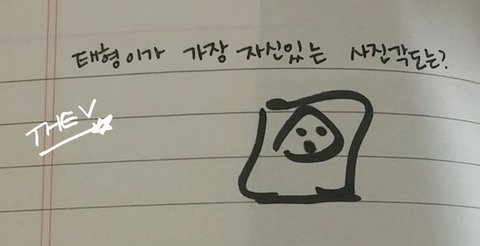 태형이가 가장 자신있는 사진각도는?
THE V